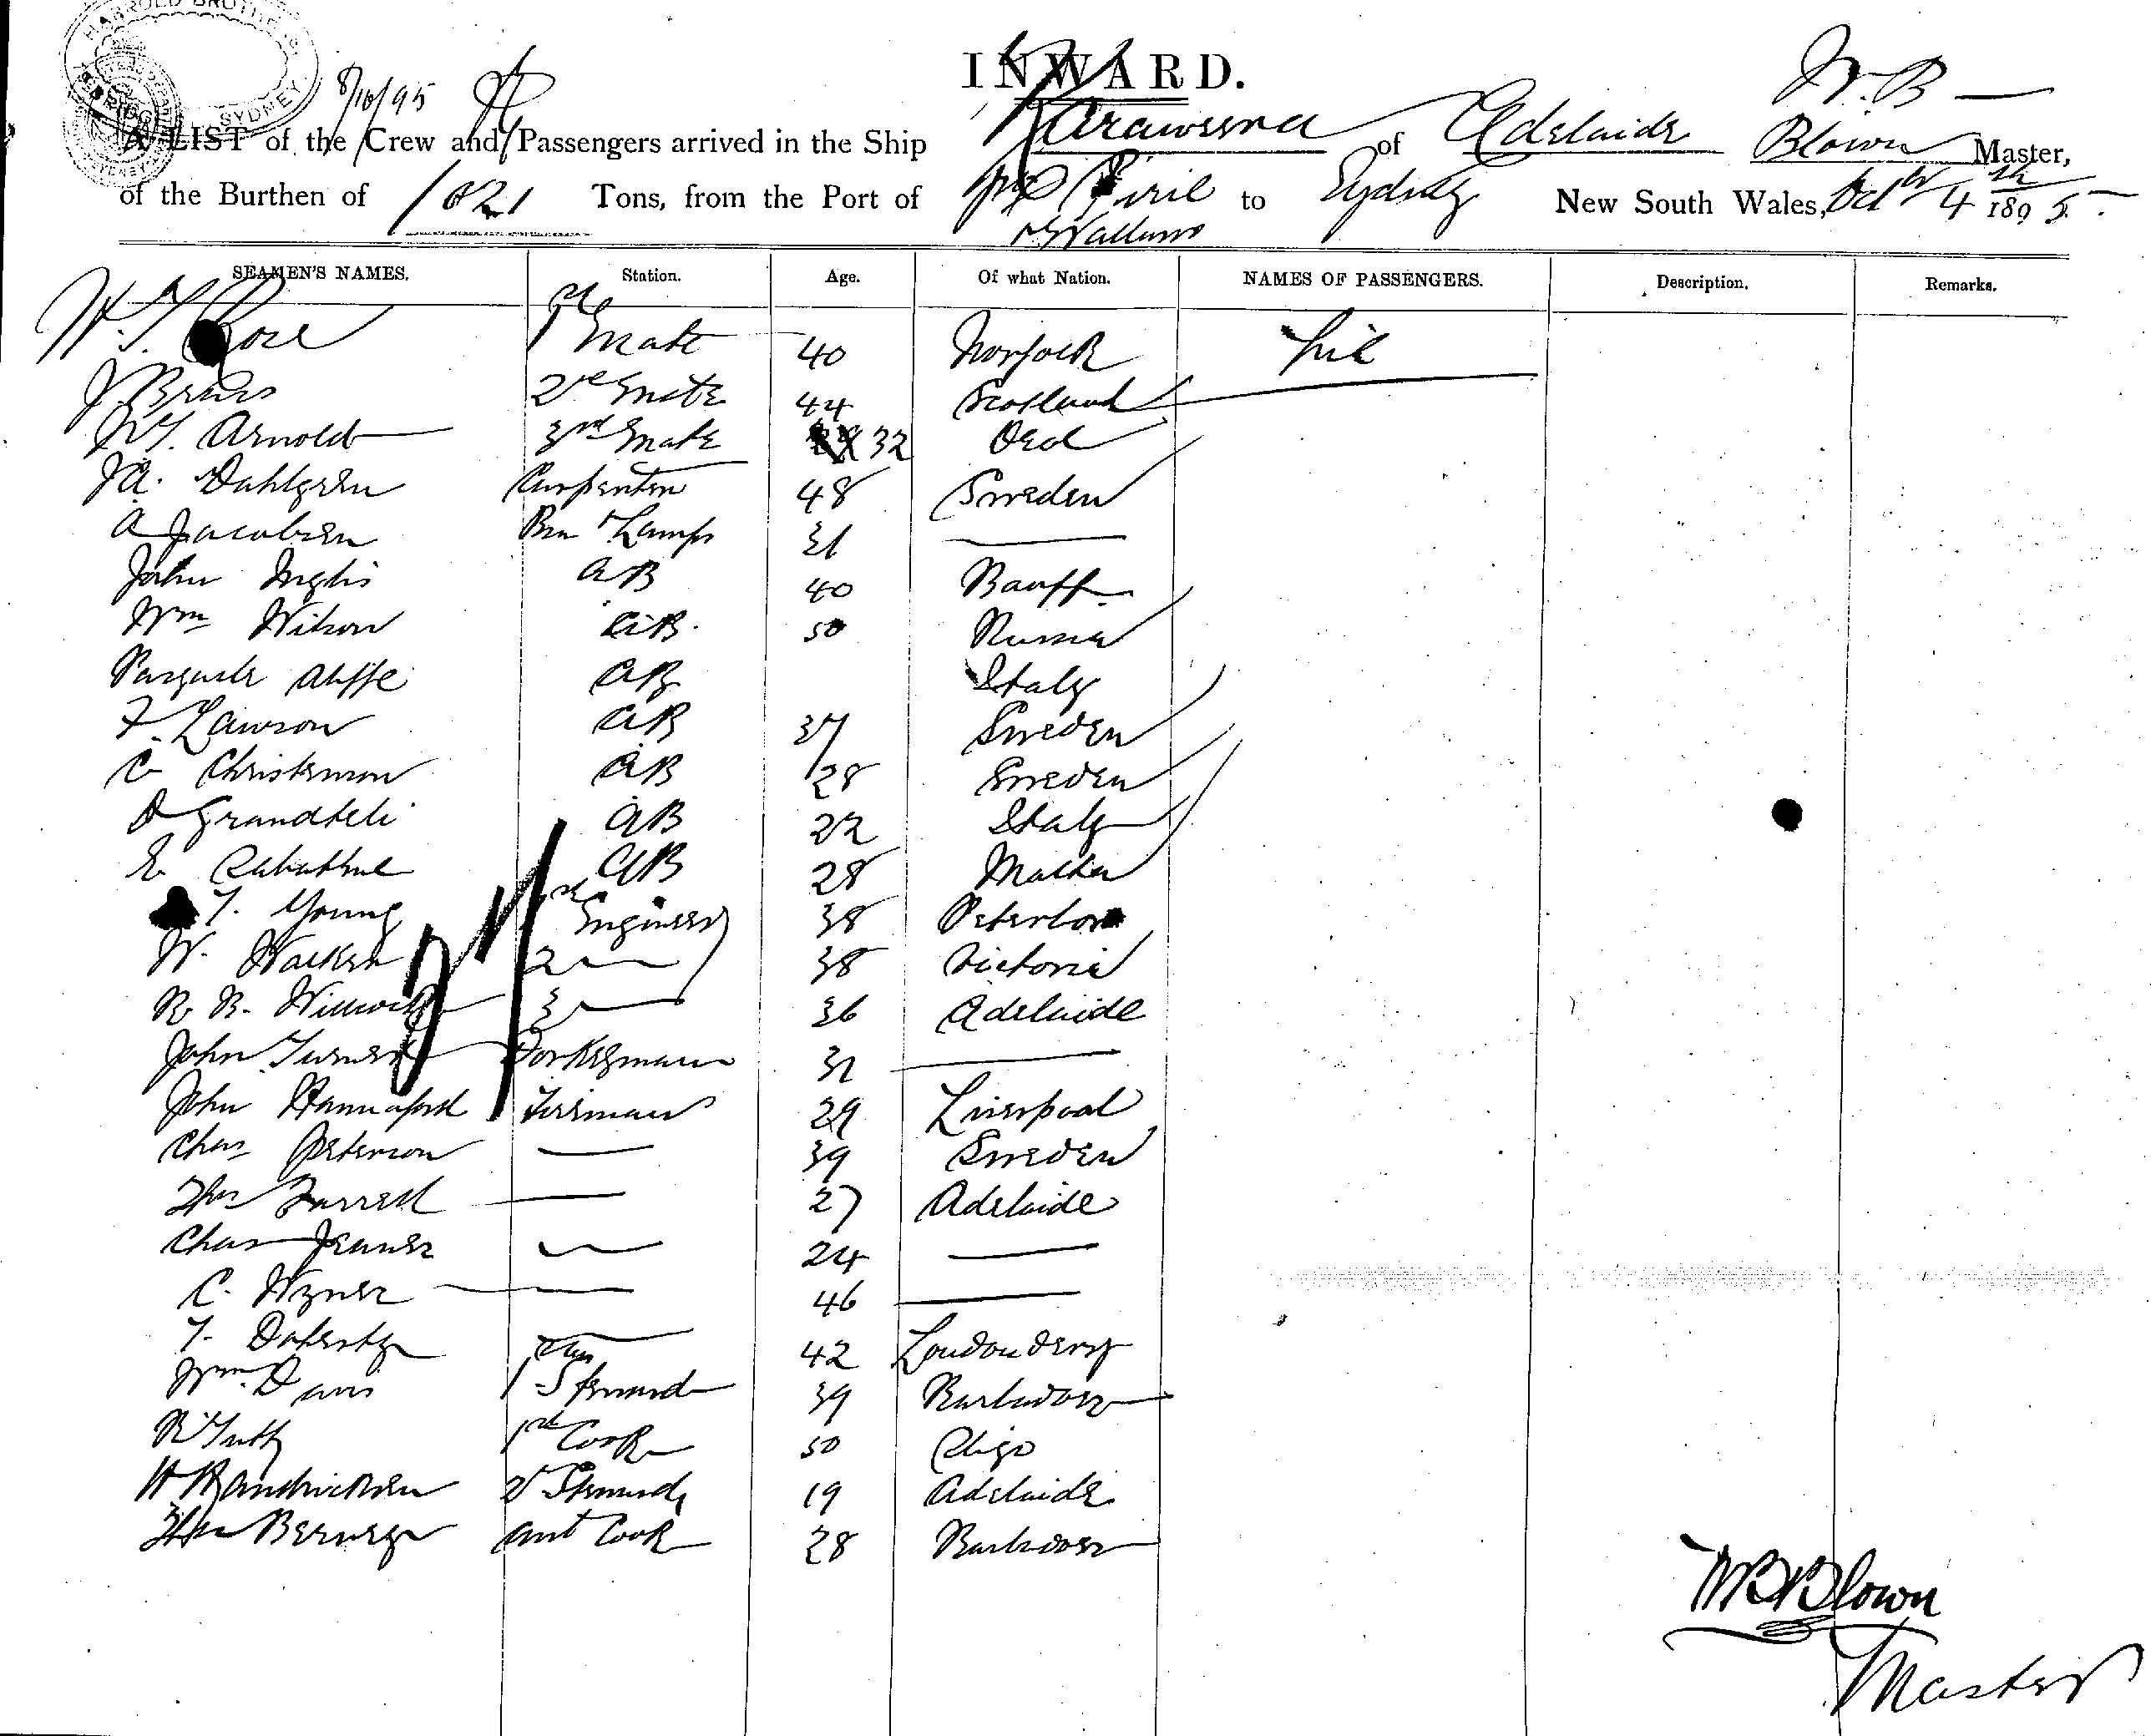 HARROLD BROTHERS
SYDNEY
8/10/95
INWARD.
W. B —
A LIST of the Crew and Passengers arrived in the Ship Karaweera of Adelaide Blown Master,
of the Burthen of 1021 Tons, from the Port of Pirie to Sydney New South Wales, Octbr 4th 1895.
& Wallaroo
SEAMEN'S NAMES. Station. Age. Of what Nation. NAMES OF PASSENGERS. Description. Remarks.
W. J. Rose 1st Mate 40 Norfolk Nil
J. 2nd Mate 44 Scotland
Arnold 3rd Mate 32
J A. Dahlgren Carpenter 48 Sweden
A Jacobsen Bsn & Lamps 31 —
John Inglis AB 40 Banff
Wm Wilson AB. 50 Russia
AB Italy
F. Lawson AB 37 Sweden
C Christenson AB 28 Sweden
D Grandteli AB 22 Italy
E. AB 28 Malta
T. Young 1st Engineer 38 Peterboro
W. 2 — 38 Victoria
R. B. 3 — 36 Adelaide
John Turner Donkeyman 32 —
John Hannaford Fireman 29 Liverpool
Chas Peterson — 39 Sweden
Thos Farrell — 27 Adelaide
Chas Jenner — 24 —
C. — 46 —
T. Doherty — 42 Londonderry
Wm. Davis 1st Steward 39 Barbadoes
R Tutty 1st Cook 50 Sligo
H 2nd Steward 19 Adelaide
Asst Cook 28 Barbadoes
W B Blown
Master